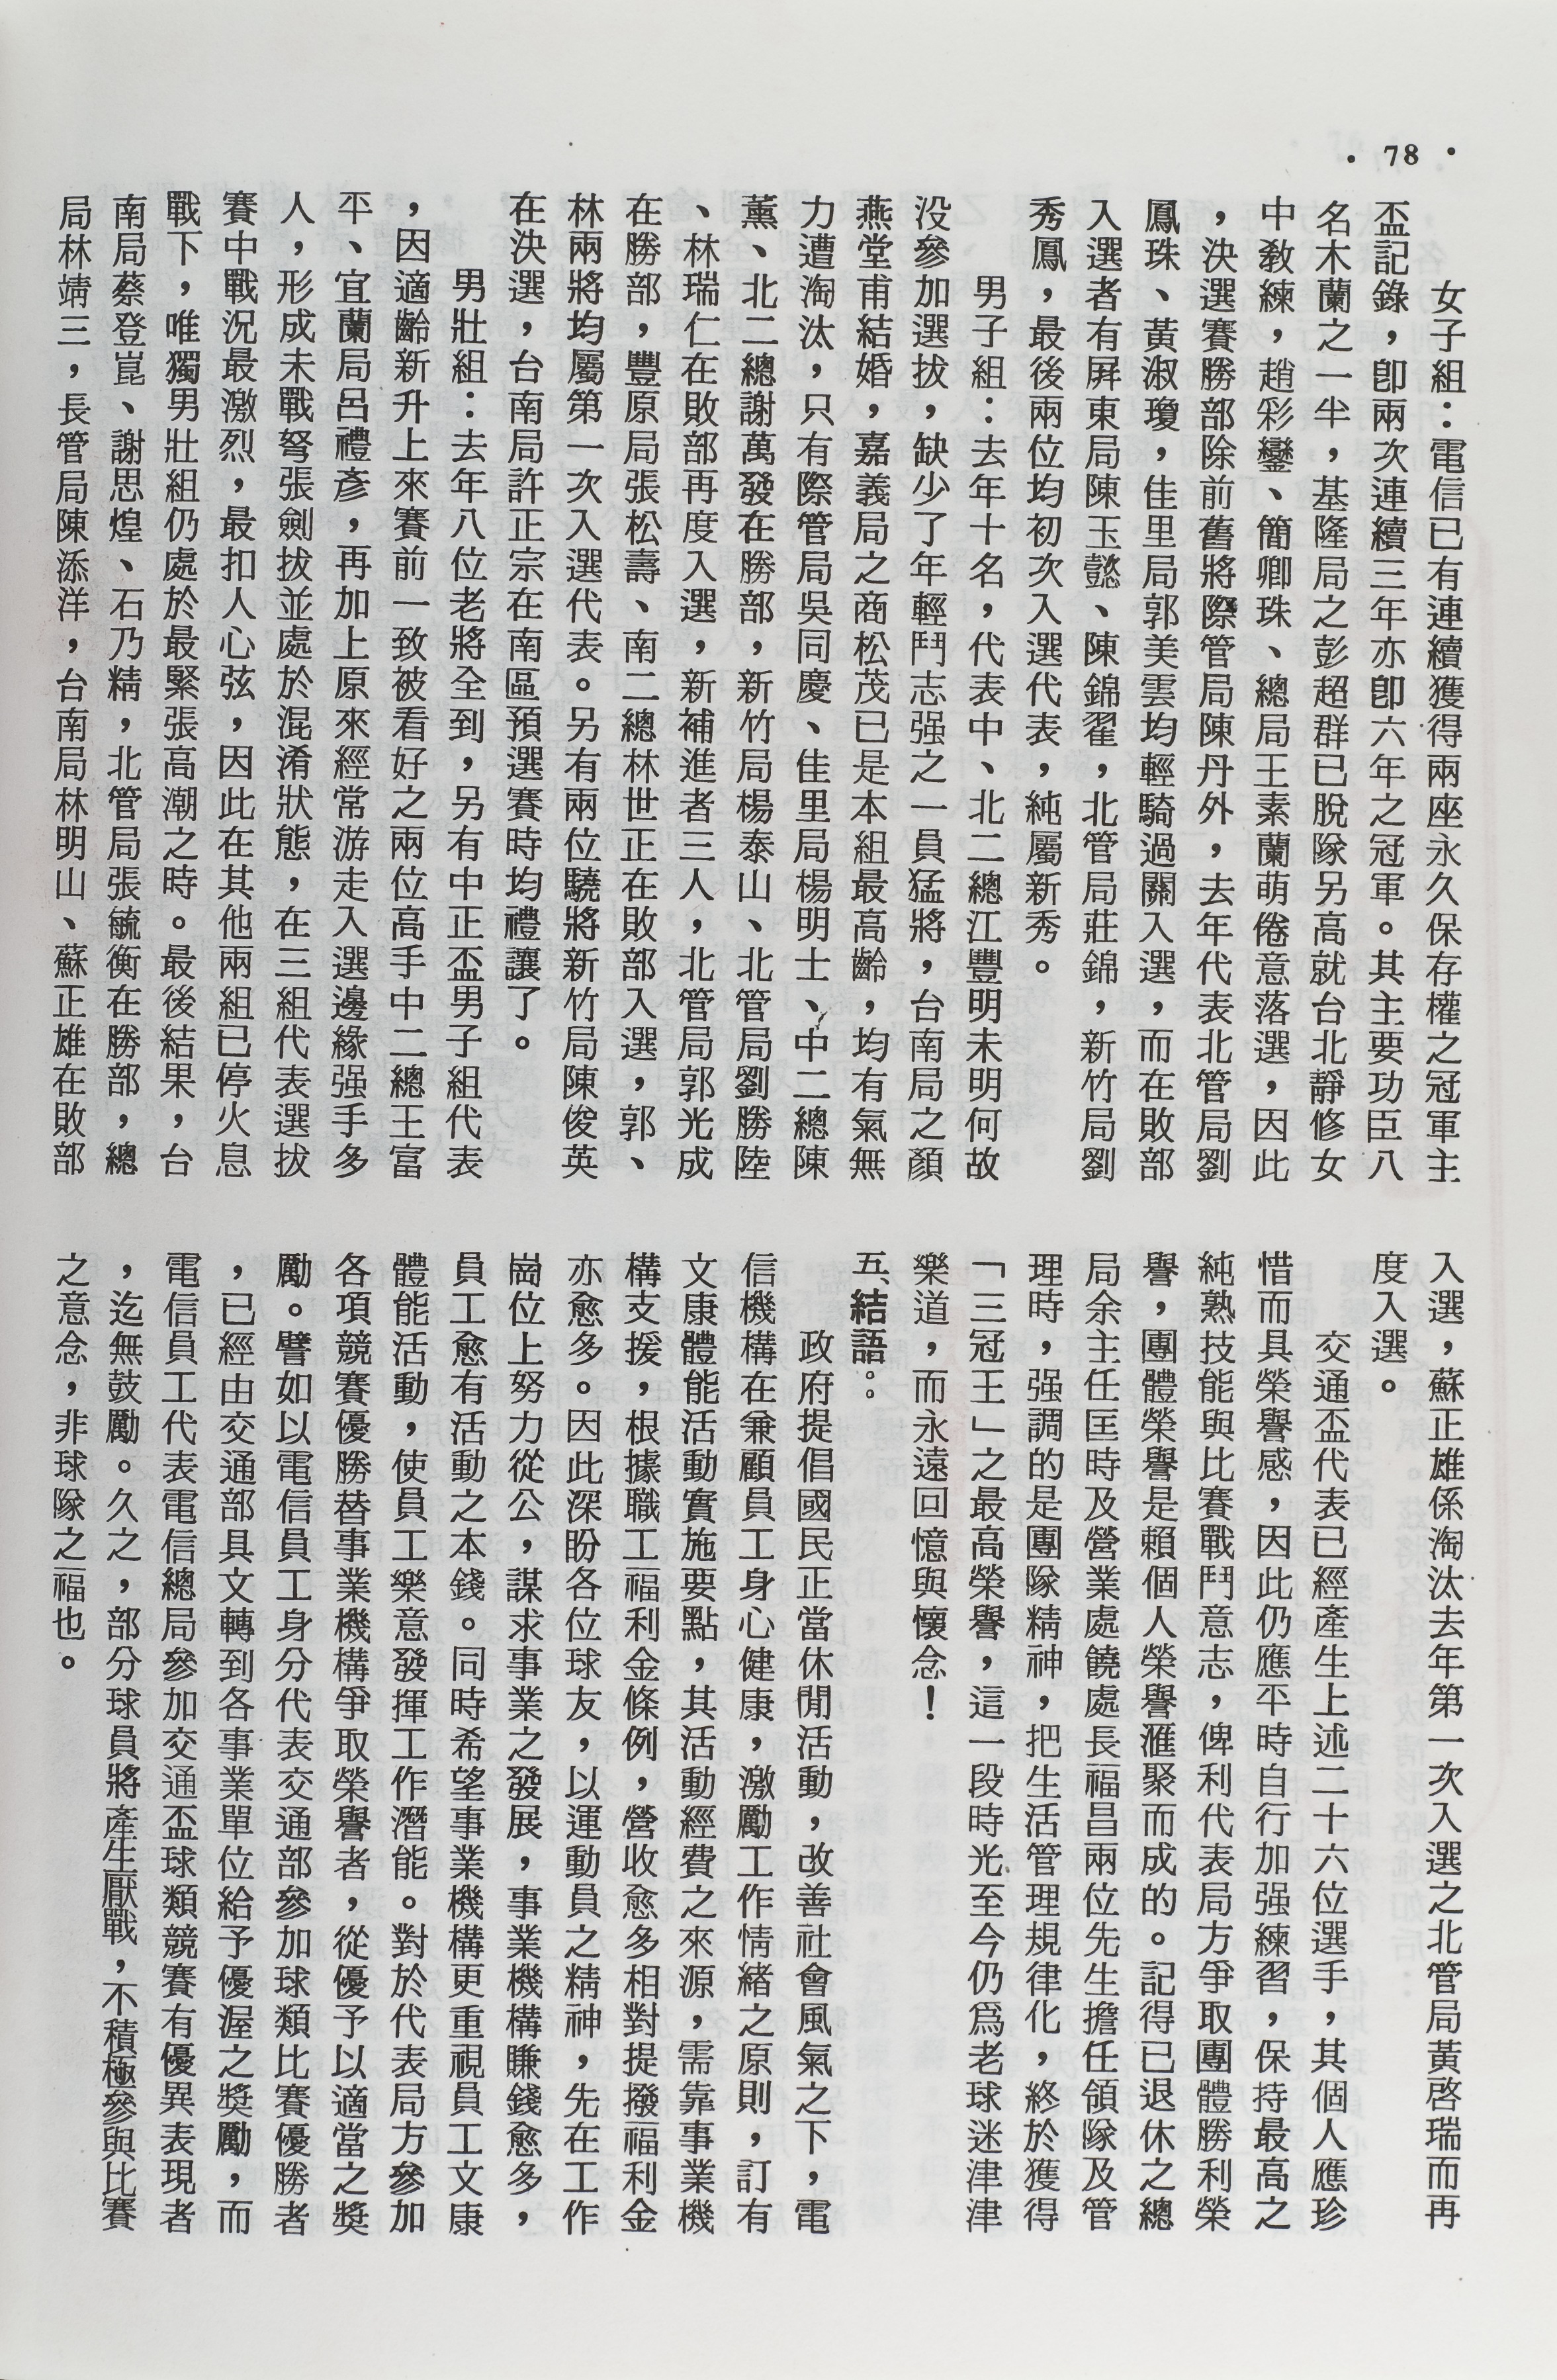 • 78 •
女子組：電信已有連續獲得兩座永久保存權之冠軍主
盃記錄，卽兩次連續三年亦卽六年之冠軍。其主要功臣八
名木蘭之一半，基隆局之彭超群已脫隊另高就台北靜修女
中教練，趙彩鑾、簡卿珠、總局王素蘭萌倦意落選，因此
，決選賽勝部除前舊將際管局陳丹外，去年代表北管局劉
鳳珠、黃淑瓊，佳里局郭美雲均輕騎過關入選，而在敗部
入選者有屏東局陳玉懿、陳錦翟，北管局莊錦，新竹局劉
秀鳳，最後兩位均初次入選代表，純屬新秀。
男子組：去年十名，代表中、北二總江豐明未明何故
没參加選拔，缺少了年輕鬥志强之一員猛將，台南局之顏
燕堂甫結婚，嘉義局之商松茂已是本組最高齡，均有氣無
力遭淘汰，只有際管局吳同慶、佳里局楊明士、中二總陳
薰、北二總謝萬發在勝部，新竹局楊泰山、北管局劉勝陸
、林瑞仁在敗部再度入選，新補進者三人，北管局郭光成
在勝部，豐原局張松壽、南二總林世正在敗部入選，郭、
林兩將均屬第一次入選代表。另有兩位驍將新竹局陳俊英
在決選，台南局許正宗在南區預選賽時均禮讓了。
男壯組：去年八位老將全到，另有中正盃男子組代表
，因適齡新升上來賽前一致被看好之兩位高手中二總王富
平、宜蘭局呂禮彥，再加上原來經常游走入選邊緣强手多
人，形成未戰弩張劍拔並處於混淆狀態，在三組代表選拔
賽中戰況最激烈，最扣人心弦，因此在其他兩組已停火息
戰下，唯獨男壯組仍處於最緊張高潮之時。最後結果，台
南局蔡登崑、謝思煌、石乃精，北管局張毓衡在勝部，總
局林靖三，長管局陳添洋，台南局林明山、蘇正雄在敗部
入選，蘇正雄係淘汰去年第一次入選之北管局黃啓瑞而再
度入選。
交通盃代表已經產生上述二十六位選手，其個人應珍
惜而具榮譽感，因此仍應平時自行加强練習，保持最高之
純熟技能與比賽戰鬥意志，俾利代表局方爭取團體勝利榮
譽，團體榮譽是賴個人榮譽滙聚而成的。記得已退休之總
局余主任匡時及營業處饒處長福昌兩位先生擔任領隊及管
理時，强調的是團隊精神，把生活管理規律化，終於獲得
「三冠王」之最高榮譽，這一段時光至今仍爲老球迷津津
樂道，而永遠回憶與懷念！
五、結語：
政府提倡國民正當休閒活動，改善社會風氣之下，電
信機構在兼顧員工身心健康，激勵工作情緒之原則，訂有
文康體能活動實施要點，其活動經費之來源，需靠事業機
構支援，根據職工福利金條例，營收愈多相對提撥福利金
亦愈多。因此深盼各位球友，以運動員之精神，先在工作
崗位上努力從公，謀求事業之發展，事業機構賺錢愈多，
員工愈有活動之本錢。同時希望事業機構更重視員工文康
體能活動，使員工樂意發揮工作潛能。對於代表局方參加
各項競賽優勝替事業機構爭取榮譽者，從優予以適當之獎
勵。譬如以電信員工身分代表交通部參加球類比賽優勝者
，已經由交通部具文轉到各事業單位給予優渥之獎勵，而
電信員工代表電信總局參加交通盃球類競賽有優異表現者
，迄無鼓勵。久之，部分球員將產生厭戰，不積極參與比賽
之意念，非球隊之福也。